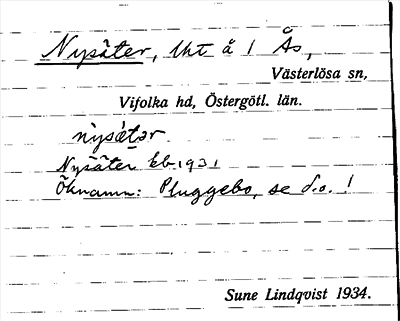 Nysäter, lht å 1 Ås,
Västerlösa sn,
Vifolka hd, Östergötl. län.
nỳsá̀tər
Nysäter kb 1931
Öknamn: Pluggebo, se d.o. !
Sune Lindqvist 1934.